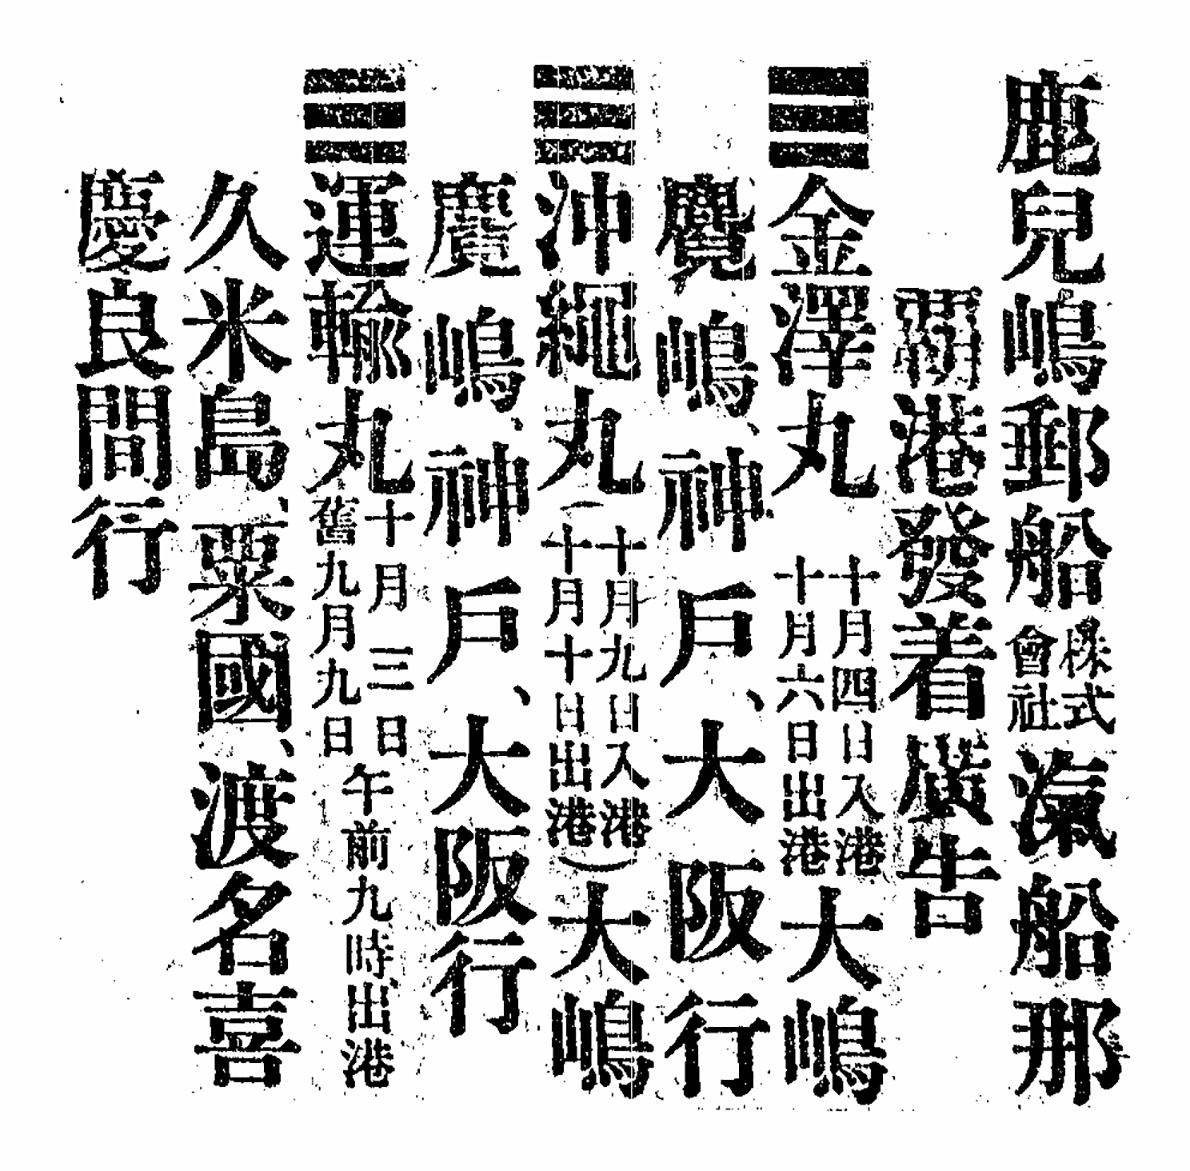 鹿兒嶋郵船株式會社滊船那
覇港發着廣告
☰金澤丸 十月四日入港十月六日出港大嶋
麑嶋、神戶、大阪行
☰沖繩丸(十月九日入港十月十日出港)大嶋
麑嶋、神戶、大阪行
☰運輸丸十月三日舊九月九日午前九時出港
久米島、粟國、渡名喜
慶良間行